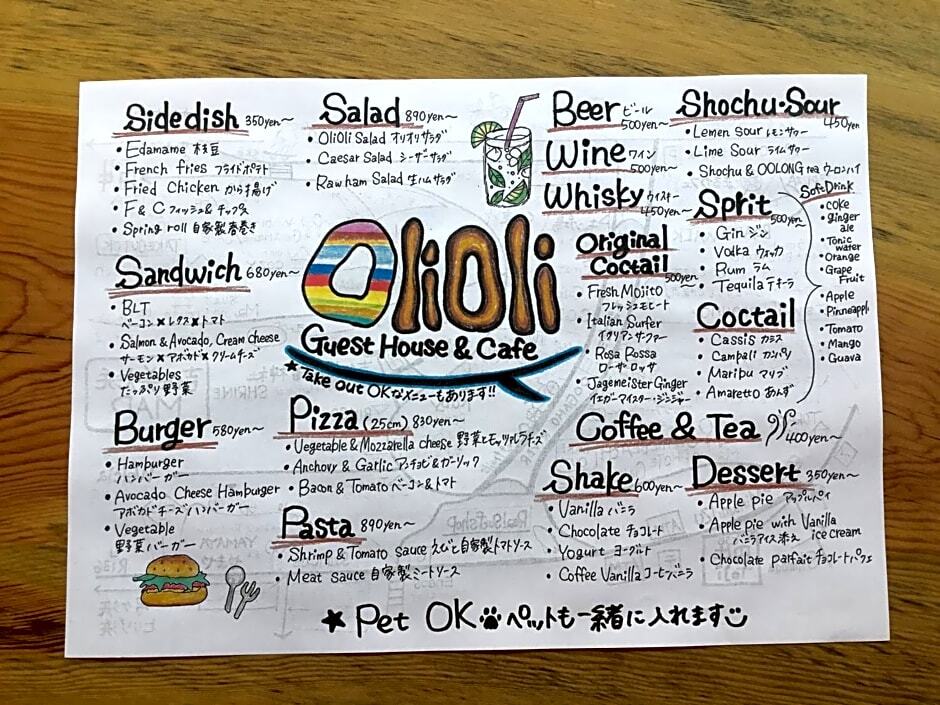 Sidedish 350yen～
• Edamame 枝豆
• French fries フライドポテト
• Fried Chicken から揚げ
• F & C フィッシュ&チップス
• Spring roll 自家製春巻き
Salad 890yen～
• OliOli Salad オリオリサラダ
• Caesar Salad シーザーサラダ
• Raw ham Salad 生ハムサラダ
Beer ビール
500yen～
Wine ワイン
500yen～
Whisky ウイスキー
450yen～
Shochu・Sour
450yen
• Lemen Sour レモンサワー
• Lime Sour ライムサワー
• Shochu & OOLONG tea ウーロンハイ
Sprit 500yen～
• Gin ジン
• Vodka ウォッカ
• Rum ラム
• Tequila テキーラ
Soft Drink
• coke
• ginger
ale
• Tonic
water
• Orange
• Grape
Fruit
• Apple
• Pinneapple
• Tomato
• Mango
• Guava
Sandwich 680yen～
• BLT
ベーコン×レタス×トマト
• Salmon & Avocado, Cream Cheese
サーモン×アボカド×クリームチーズ
• Vegetables
たっぷり野菜
OliOli
Guest House & Cafe
★Take out OKなメニューもあります!!
Original
Coctail
500yen～
• Fresh Mojito
フレッシュモヒート
• Italian Surfer
イタリアンサーファー
• Rosa Rossa
ローザ・ロッサ
• Jagemeister Ginger
イエガーマイスター・ジンジャー
Coctail
• Cassis カシス
• Campall カンパリ
• Maribu マリブ
• Amaretto あんず
Burger 580yen～
• Hamburger
ハンバーガー
• Avocado Cheese Hamburger
アボカドチーズハンバーガー
• Vegetable
野菜バーガー
Pizza (25cm) 830yen～
• Vegetable & Mozzarella cheese 野菜とモッツァレラチーズ
• Anchovy & Garlic アンチョビ&ガーリック
• Bacon & Tomato ベーコン&トマト
Pasta 890yen～
• Shrimp & Tomato sauce えびと自家製トマトソース
• Meat sauce 自家製ミートソース
Coffee & Tea 400yen～
Shake 600yen～
• Vanilla バニラ
• Chocolate チョコレート
• Yogurt ヨーグルト
• Coffee Vanilla コーヒーバニラ
Dessert 350yen～
• Apple pie アップルパイ
• Apple pie with Vanilla
ice cream
バニラアイス添え
• Chocolate parfait チョコレートパフェ
★ Pet OK ペットも一緒に入れます